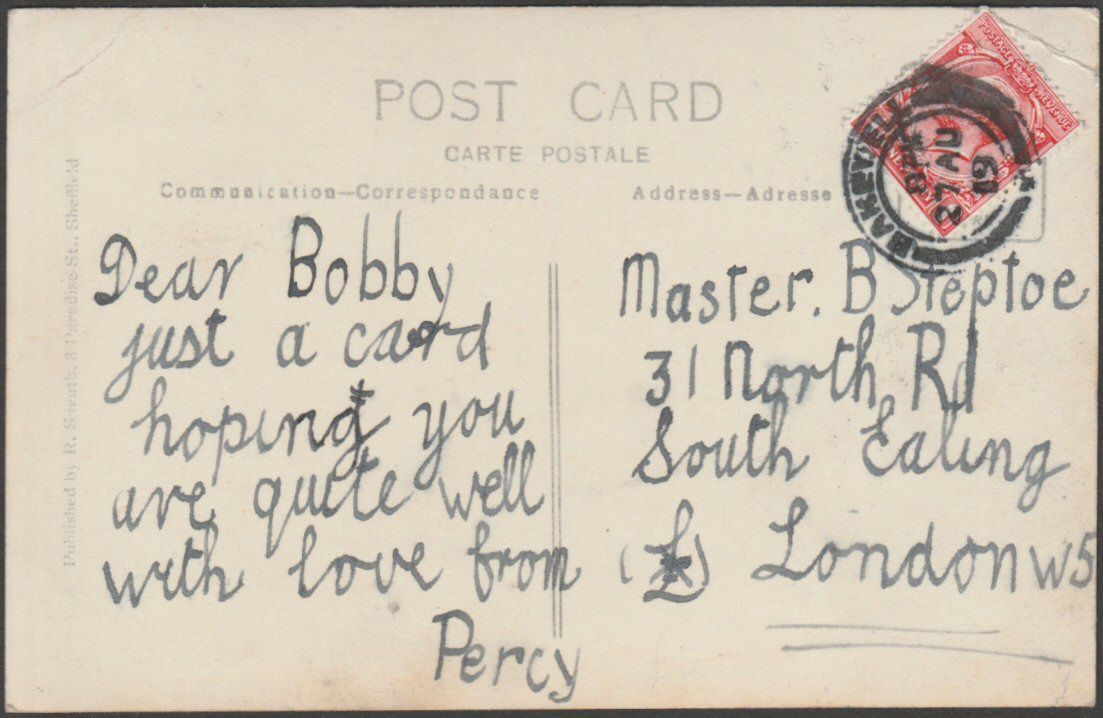 POST CARD
CARTE POSTALE
Communication—Correspondence
Address—Adresse
POSTAGE REVENUE
BAKEWELL
27 AU
19
Published by R. Sneath, 3 Paradise St., Sheffield
Dear Bobby
just a card
hoping you
are quite well
with love from
Percy
Master. B Steptoe
31 North Rd
South Ealing
London W5